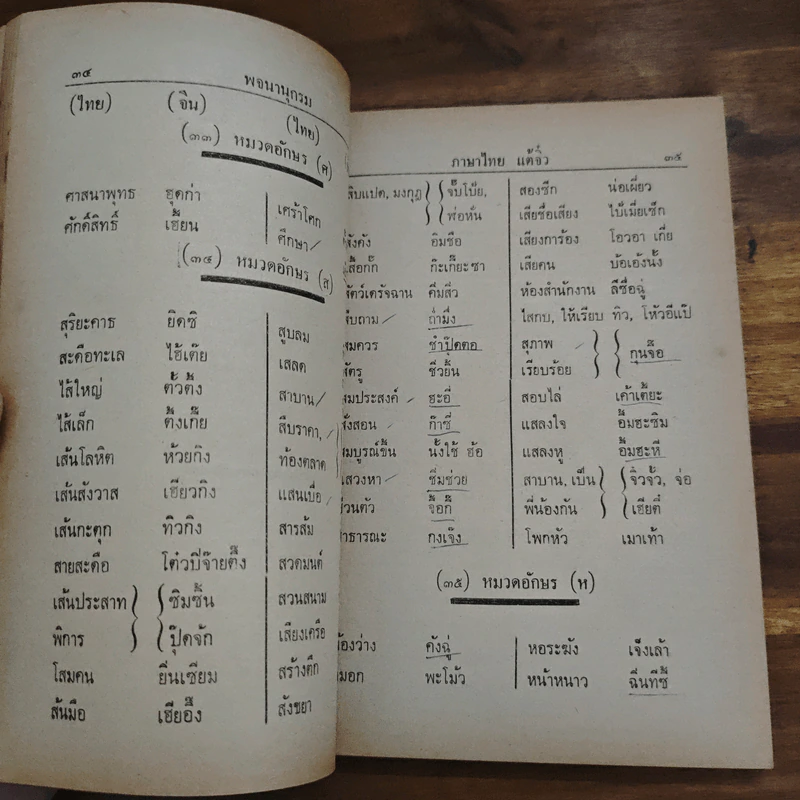 ๓๔ พจนานุกรม
(ไทย) (จีน) (ไทย)
(๓๓) หมวดอักษร (ศ)
ศาสนาพุทธ ฮุดก่า เศร้าโศก
ศักดิ์สิทธิ์ เฮี้ยน ศึกษา
(๓๔) หมวดอักษร (ส)
สุริยะคาธ ยิดซิ สูบลม
สะดือทะเล ไฮ้เต๊ย เสลด
ไส้ใหญ่ ตั้วตั้ง สาบาน
ไส้เล็ก ตั้งเกี๊ย สืบราคา,
เส้นโลหิต ห้วยกิง ท้องตลาด
เส้นสังวาส เฮียวกิง แสนเบื่อ
เส้นกะตุก ทิวกิง สารส้ม
สายสะดือ โต๋วปีจ๊ายตั้ง สวดมนต์
เส้นประสาท ซิมซิ้น สวนสนาม
พิการ ปุ๊ดจัก เสียงเครือ
โสมคน ยิ่นเซียม สร้างตึก
ส้นมือ เฮียอึ้ง สังขยา
ภาษาไทย แต้จิ๋ว ๓๕
สิบแปด, มงกุฎ จั๊บโป้ย, สองซีก น่อเผี่ยว
พ่อหั่น เสียชื่อเสียง ไป๋เมี่ยเซ็ก
อิมซือ เสียงการ้อง โอวอา เกี่ย
ก๊ะเกี๊ยะซา เสียคน บ้อเอ้งนั้ง
สัตว์เดรัจฉาน คิมสิ่ว ห้องสำนักงาน ลีซื่อฉู่
สืบถาม ถ่ำมึ่ง ไสกบ, ให้เรียบ ทิว, โห้วอีแป๊
สมควร ซำป๊ดตอ สุภาพ กุนจือ
ศัตรู ซิวยิ้น เรียบร้อย
สมประสงค์ ฮะอี่ สอบไล่ เค้าเตยะ
สั่งสอน ก๊าซี่ แสลงใจ อิ๊มฮะซิม
สมบูรณ์ขึ้น นั้งใช้ ฮ้อ แสลงหู อิ๊มฮะหี
แสวงหา ซิ่มช่วย สาบาน, เป็น จิวจั้ว, จ่อ
ส่วนตัว จื้อกี้ พี่น้องกัน เฮียตี๋
สาธารณะ กงเจ๊ง โพกหัว เมาเท้า
(๓๕) หมวดอักษร (ห)
ห้องว่าง คังฉู่ หอระฆัง เจ็งเล้า
หมอก พะโม้ว หน้าหนาว ฉิ่นทีซี้